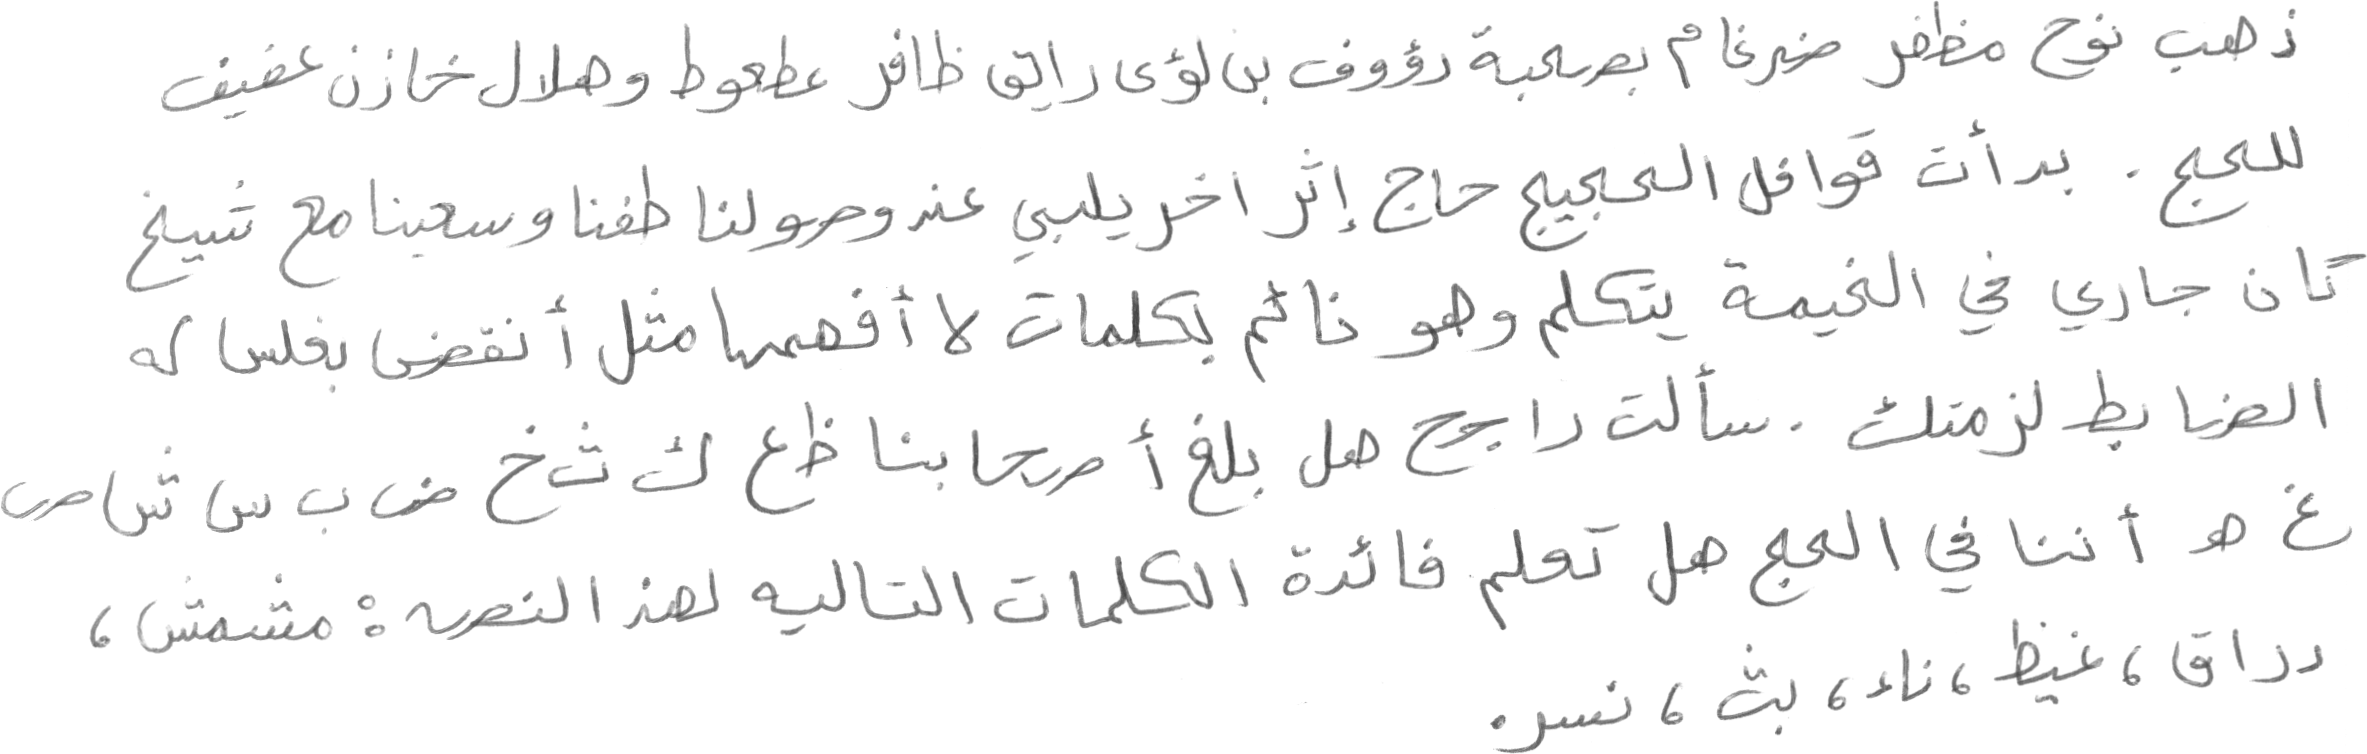 ذهب نوح مظفر ضرغام بصحبة رؤوف بن لؤى رايق ظافر عطعوط وهلال خازن عفيف
للحج . بدأت قوافل الحجيج حاج إثر اخر يلبي عند وصولنا طفنا وسعينا مع شيخ
كان جاري في الخيمة يتكلم وهو نائم بكلمات لا أفهمها مثل أنقضى بغلس له
الضابط لزمتك . سألت راجح هل بلغ أصحابنا ظ ع ك ث خ ض ب س ش ص
غ ه أننا في الحج هل تعلم فائدة الكلمات التاليه لهذا النص : مشمش ،
دراق ، غيظ ، ناء ، بث ، نسر .